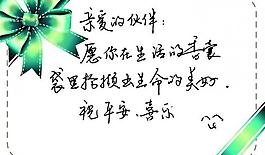 亲爱的伙伴：
愿你在生活的
里拾掇出生命的美好。
祝平安、喜乐